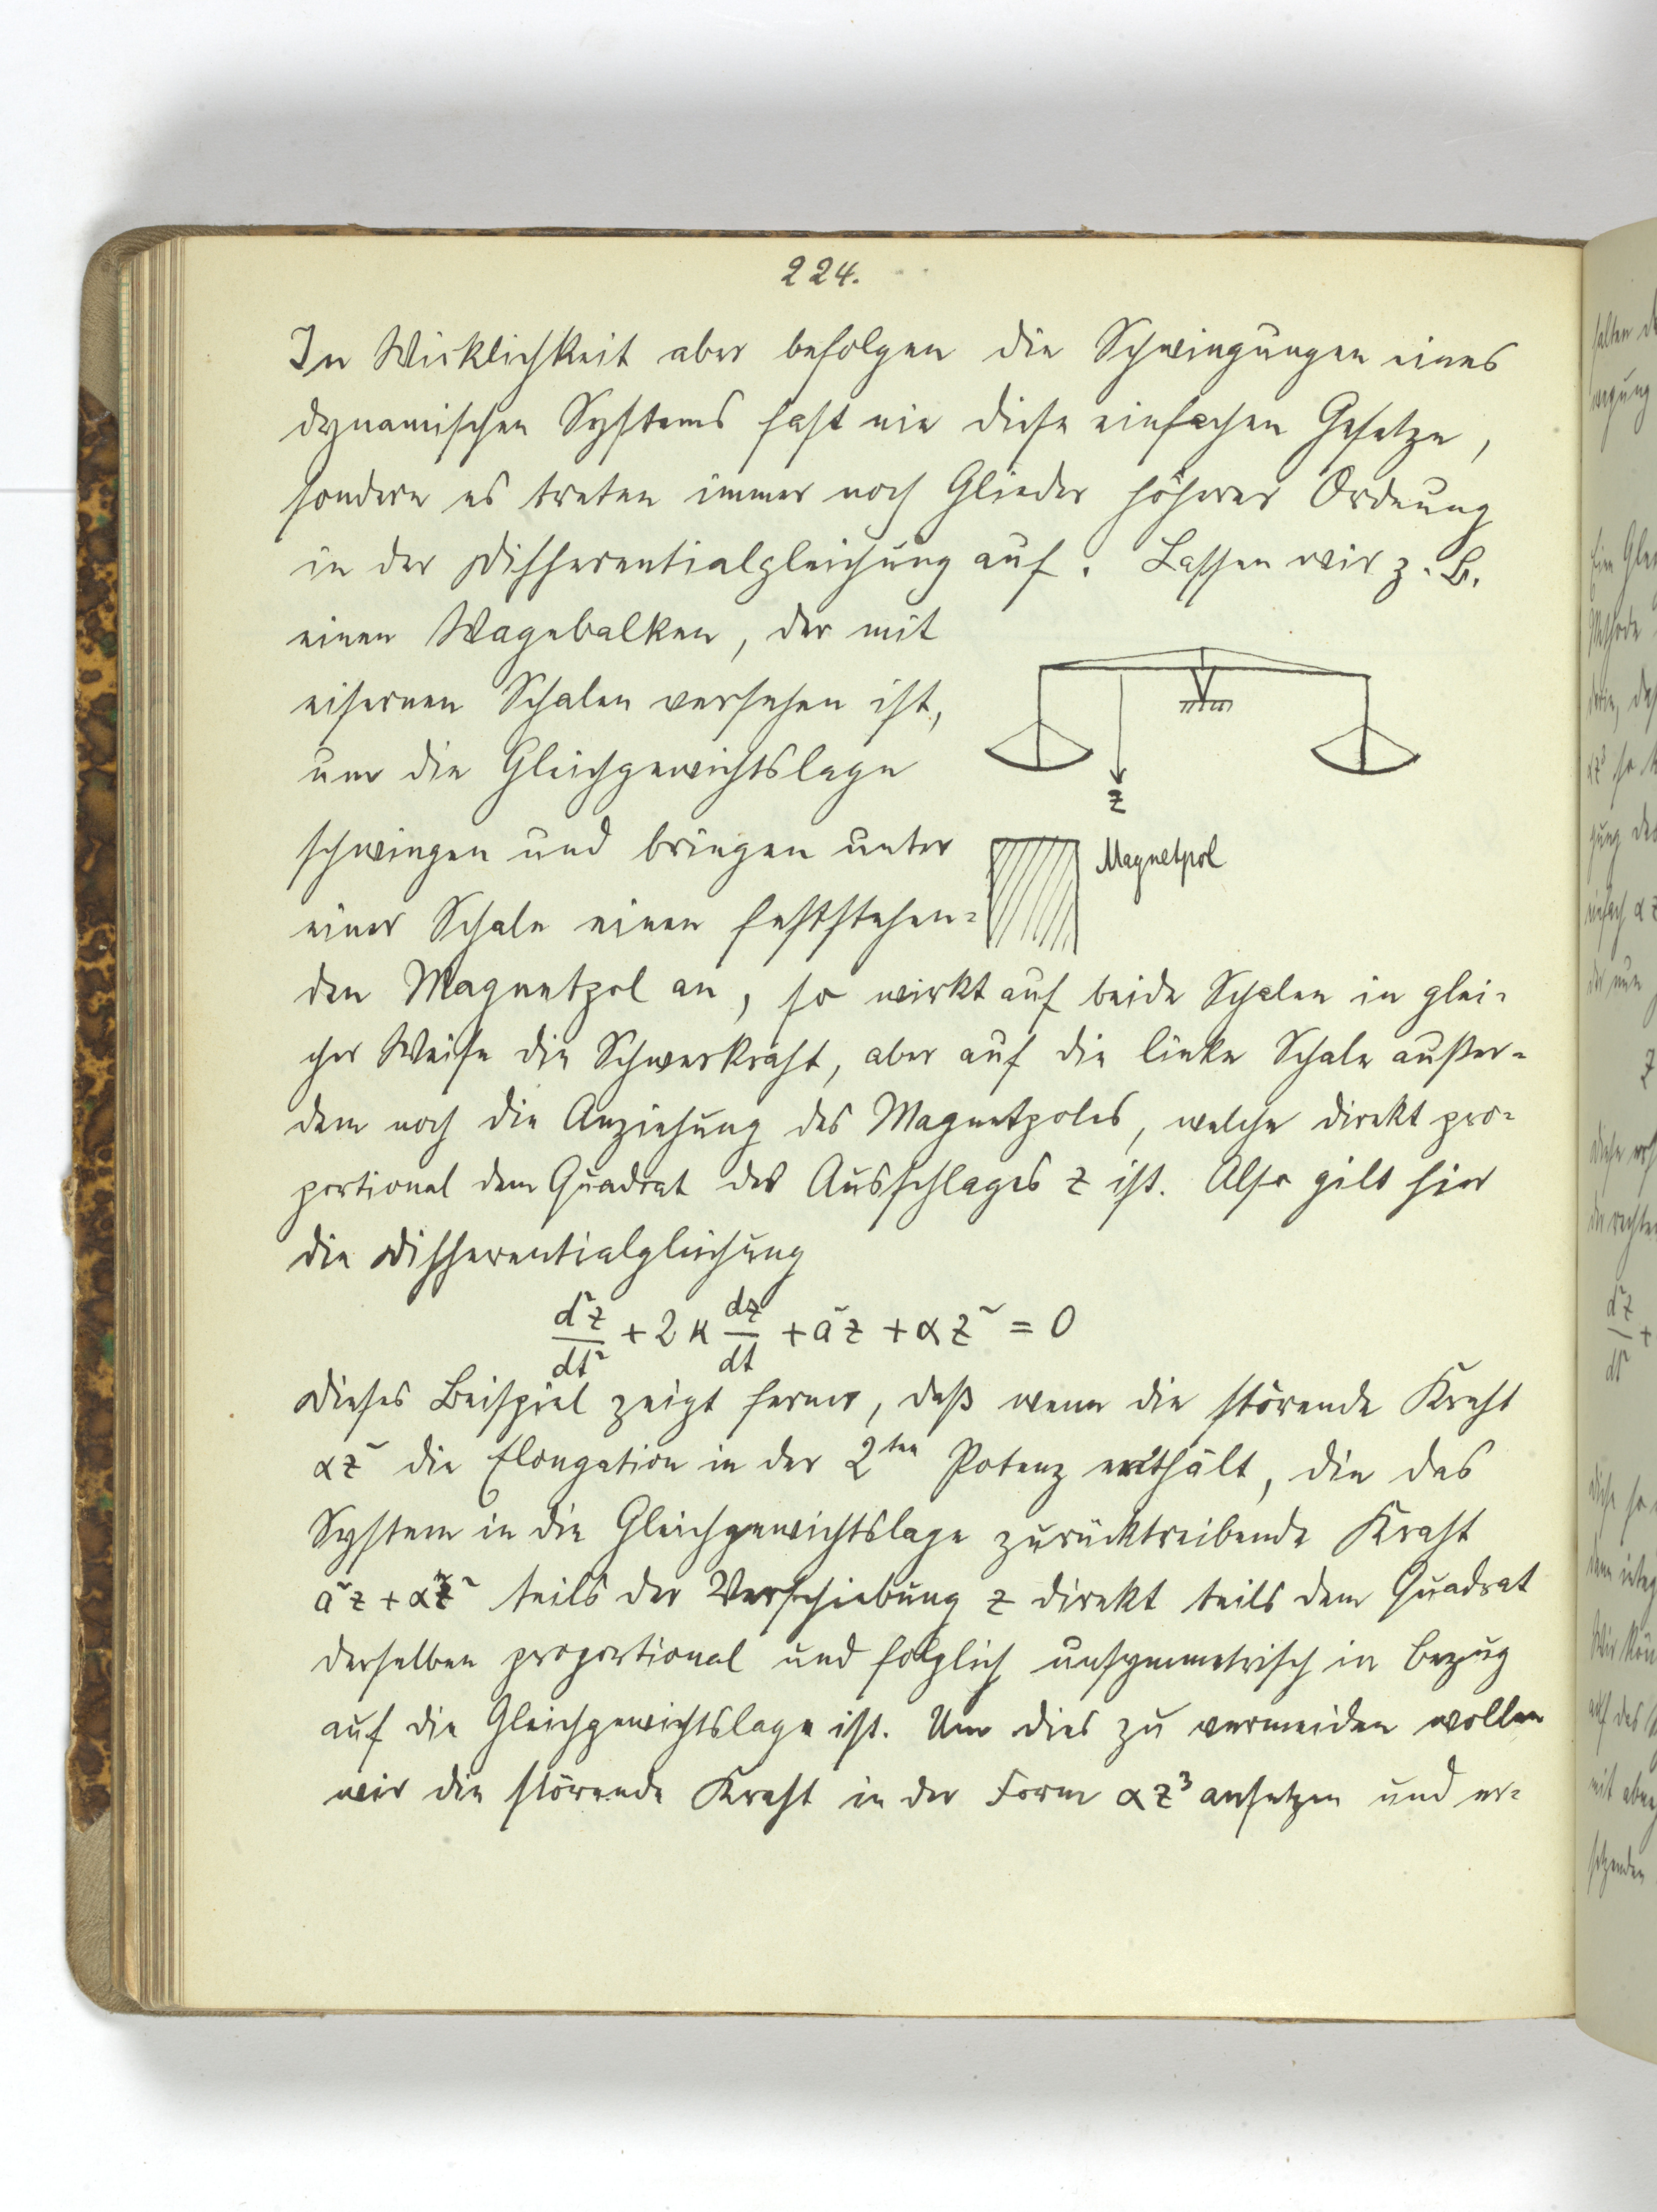 224.
In Wirklichkeit aber befolgen die Schwingungen eines
dynamischen Systems fast nie diese einfachen Gesetze,
sondern es treten immer noch Glieder höherer Ordnung
in der Differentialgleichung auf. Lassen wir z. B.
einen Wagebalken, der mit
eisernen Schalen versehen ist,
um die Gleichgewichtslage
schwingen und bringen unter
einer Schale einen feststehen-
z
Magnetpol
den Magnetpol an, so wirkt auf beide Schalen in glei-
cher Weise die Schwerkraft, aber auf die linke Schale außer-
dem noch die Anziehung des Magnetpoles, welche direkt pro-
portional dem Quadrat des Ausschlages z ist. Also gilt hier
die Differentialgleichung
d²z/dt² + 2κ dz/dt + a²z + αz² = 0
Dieses Beispiel zeigt ferner, daß wenn die störende Kraft
αz² die Elongation in der 2ten Potenz enthält, die das
System in die Gleichgewichtslage zurücktreibende Kraft
a²z + αz² teils der Verschiebung z direkt teils dem Quadrat
derselben proportional und folglich unsymmetrisch in Bezug
auf die Gleichgewichtslage ist. Um dies zu vermeiden wollen
wir die störende Kraft in der Form αz³ ansetzen und er-